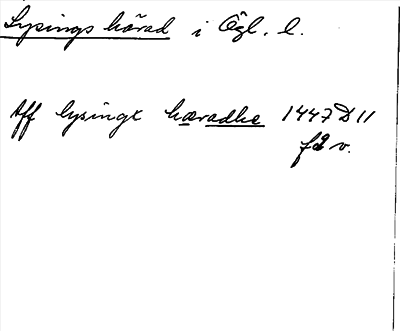 Lysings härad i Ögl. l.
Aff lysingx hæradhe 1447 D 11
f 2 v.